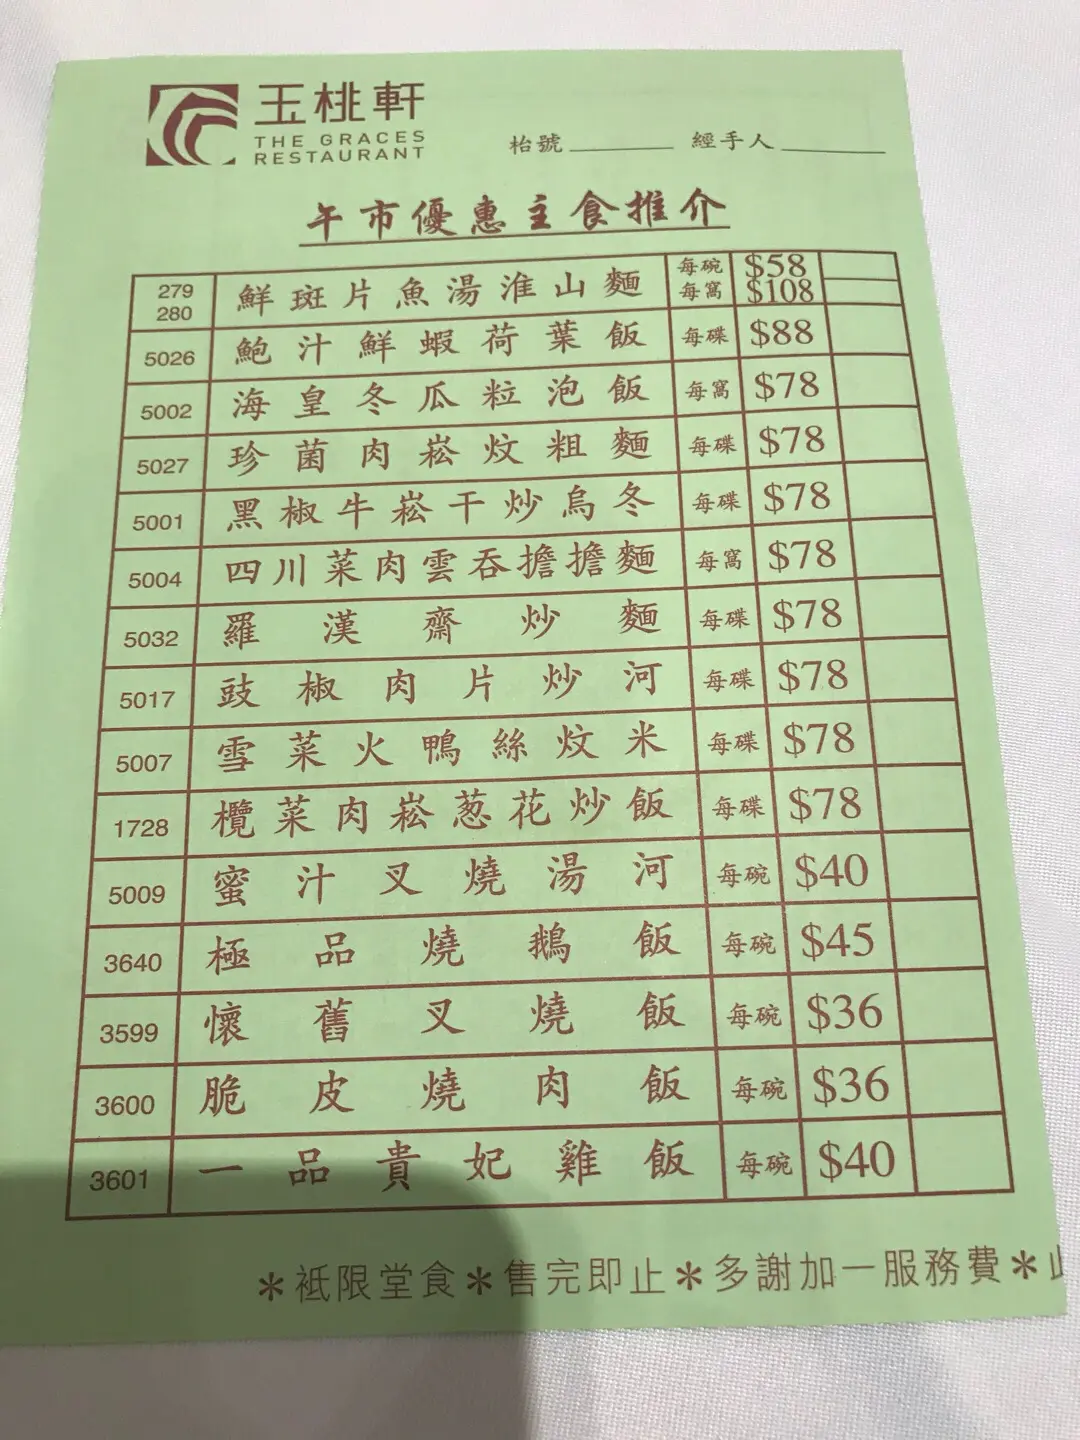 玉桃軒
THE GRACES
RESTAURANT
枱號 經手人
午市優惠主食推介
279 280 鮮斑片魚湯淮山麵 每碗 $58 每窩 $108
5026 鮑汁鮮蝦荷葉飯 每碟 $88
5002 海皇冬瓜粒泡飯 每窩 $78
5027 珍菌肉崧炆粗麵 每碟 $78
5001 黑椒牛崧干炒烏冬 每碟 $78
5004 四川菜肉雲吞擔擔麵 每窩 $78
5032 羅漢齋炒麵 每碟 $78
5017 豉椒肉片炒河 每碟 $78
5007 雪菜火鴨絲炆米 每碟 $78
1728 欖菜肉崧葱花炒飯 每碟 $78
5009 蜜汁叉燒湯河 每碗 $40
3640 極品燒鵝飯 每碗 $45
3599 懷舊叉燒飯 每碗 $36
3600 脆皮燒肉飯 每碗 $36
3601 一品貴妃雞飯 每碗 $40
*祗限堂食*售完即止*多謝加一服務費*